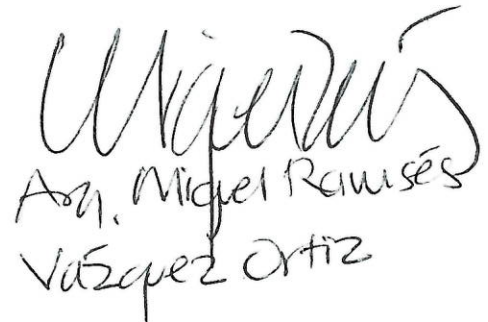 Arq. Miguel Ramsés
Vázquez Ortiz